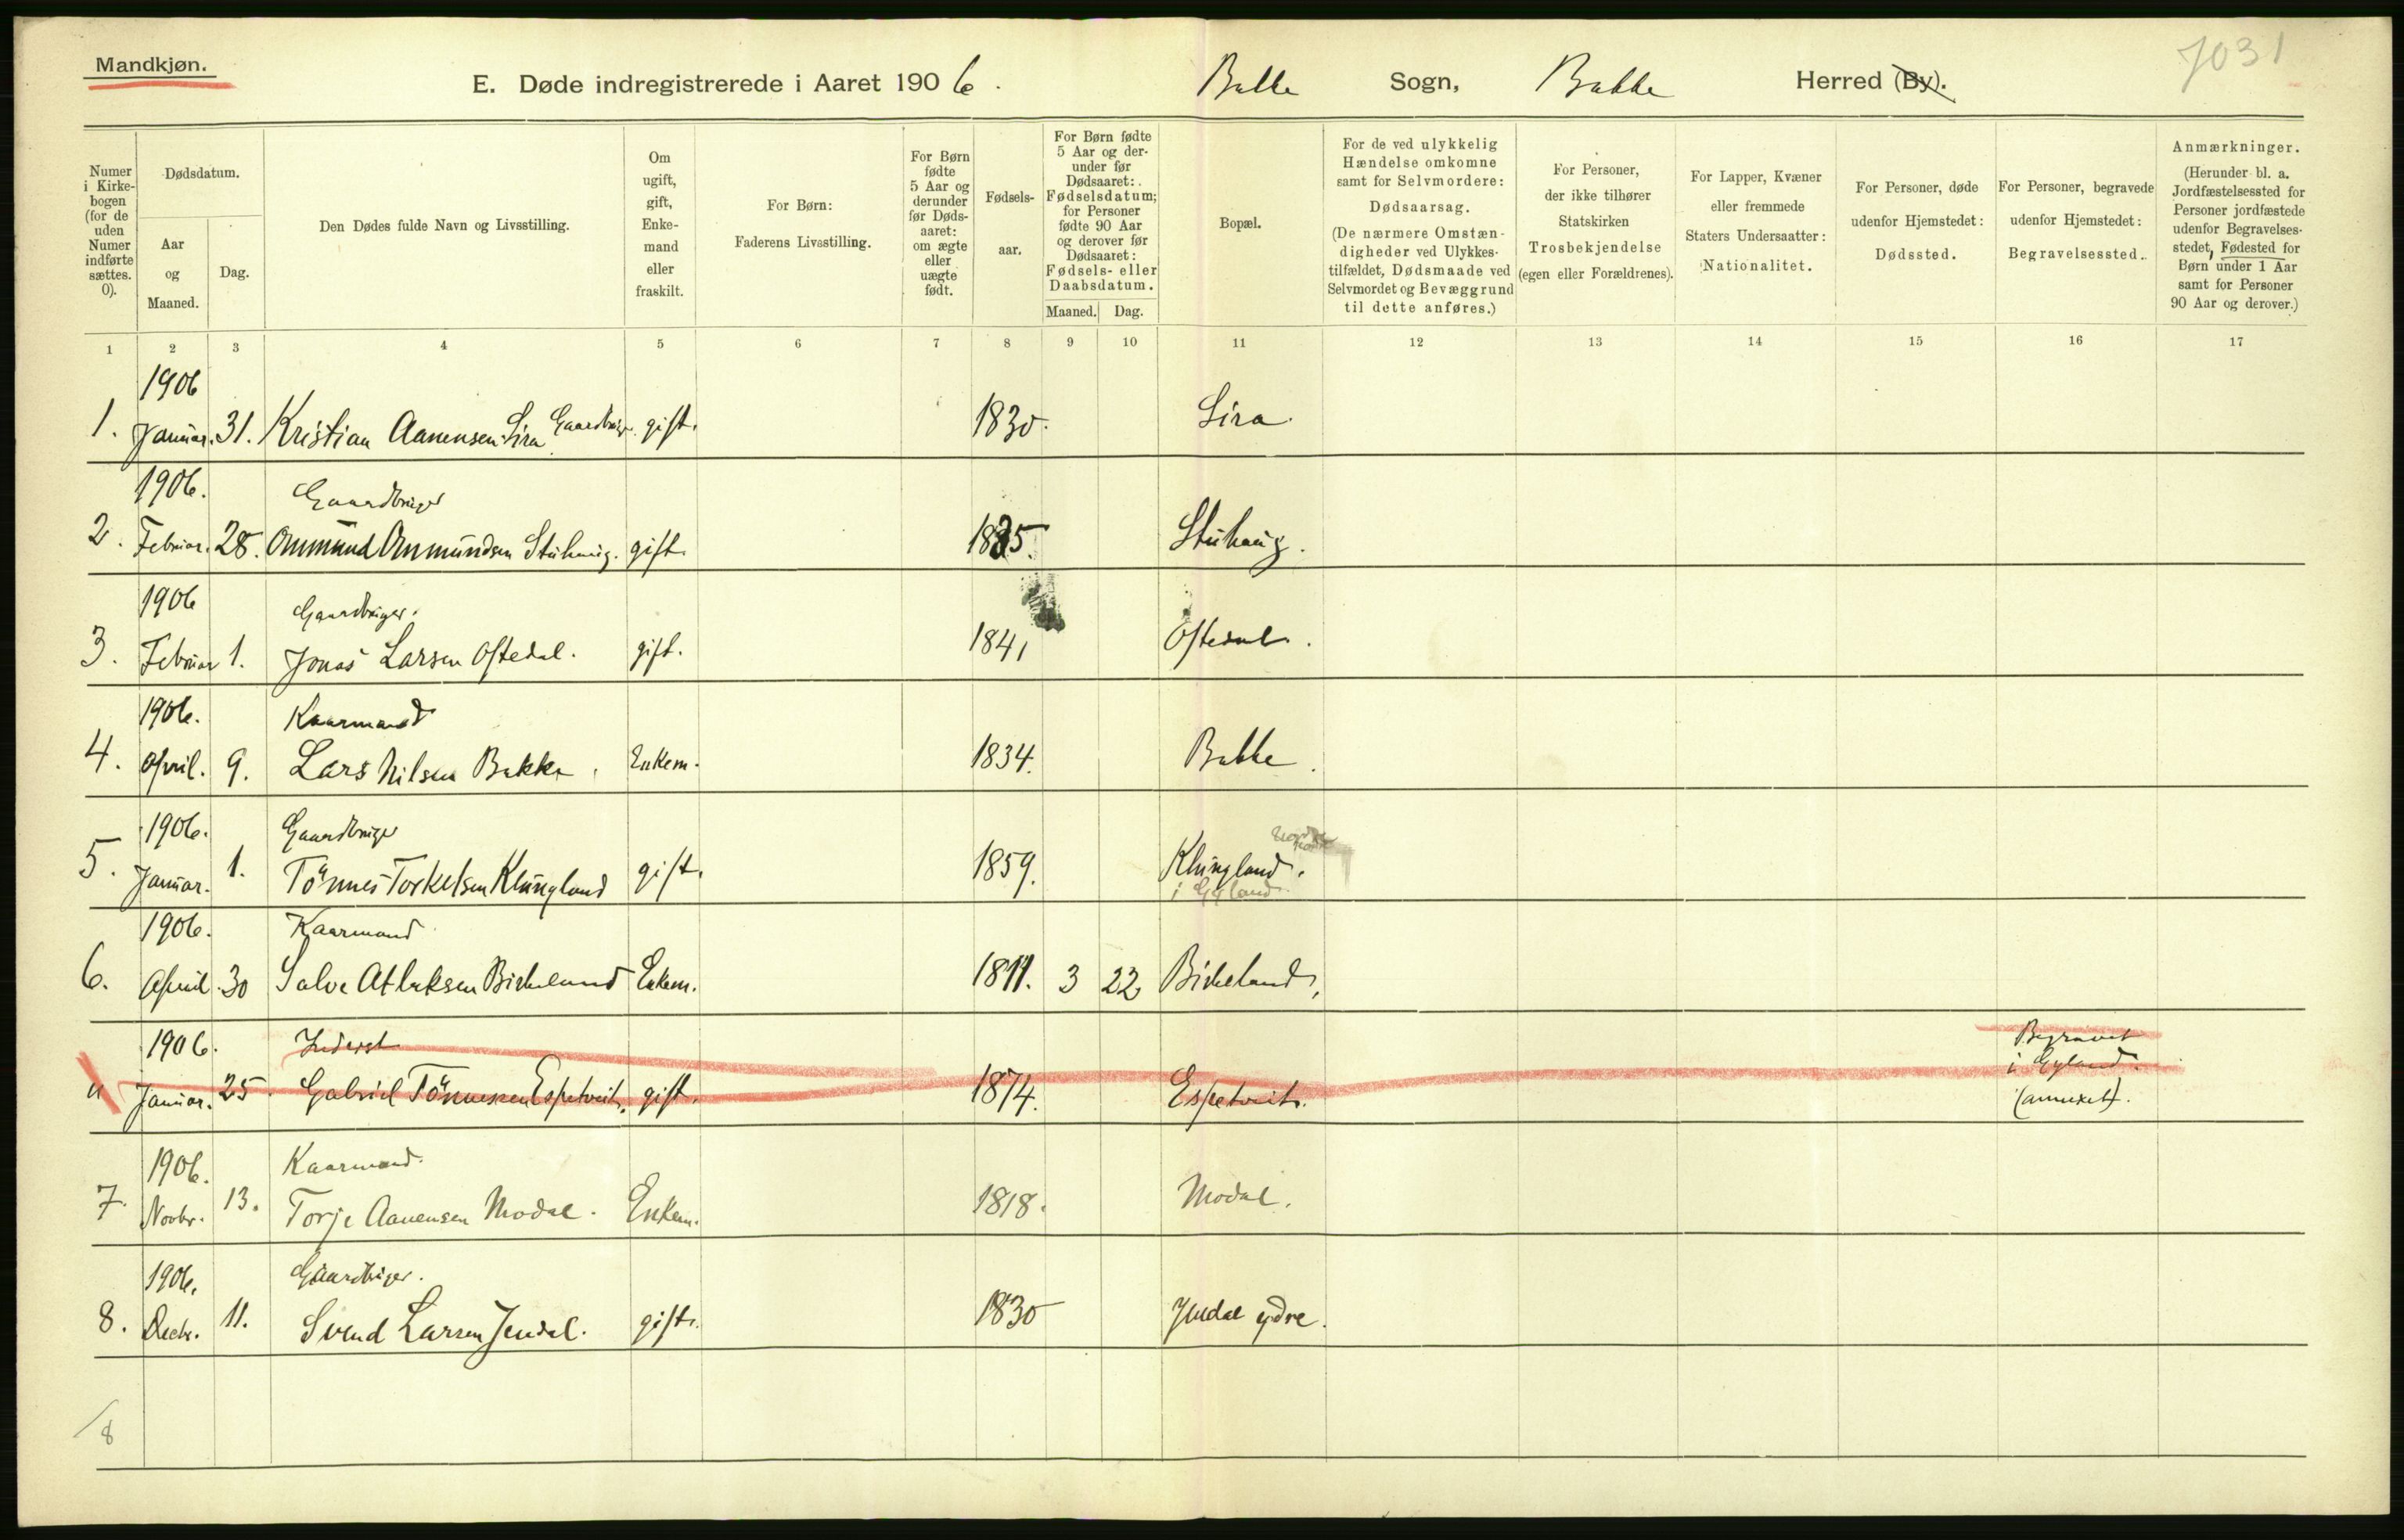 Mandkjøn.
E. Døde indregistrerede i Aaret 1906. Bakke Sogn, Bakke Herred (By).
7031
Numer i Kirkebogen (for de uden Numer indførte sættes. 0).
Dødsdatum.
Aar og Maaned.
Dag.
Den Dødes fulde Navn og Livsstilling.
Om ugift, gift, Enkemand eller fraskilt.
For Børn: Faderens Livsstilling.
For Børn fødte 5 Aar og derunder før Dødsaaret: om ægte eller uægte født.
Fødselsaar.
For Børn fødte 5 Aar og derunder før Dødsaaret: Fødselsdatum; for Personer fødte 90 Aar og derover før Dødsaaret: Fødsels- eller Daabsdatum.
Maaned. Dag.
Bopæl.
For de ved ulykkelig Hændelse omkomne samt for Selvmordere: Dødsaarsag. (De nærmere Omstændigheder ved Ulykkestilfældet, Dødsmaade ved Selvmordet og Bevæggrund til dette anføres.)
For Personer, der ikke tilhører Statskirken Trosbekjendelse (egen eller Forældrenes).
For Lapper, Kvæner eller fremmede Staters Undersaatter: Nationalitet.
For Personer, døde udenfor Hjemstedet: Dødssted.
For Personer, begravede udenfor Hjemstedet: Begravelsessted.
Anmærkninger. (Herunder bl. a. Jordfæstelsessted for Personer jordfæstede udenfor Begravelsesstedet, Fødested for Børn under 1 Aar samt for Personer 90 Aar og derover.)
1 2 3 4 5 6 7 8 9 10 11 12 13 14 15 16 17
1906
1. Januar. 31. Kristian Aanensen Lira Gaardbruger. gift. 1830. Lira.
1906. Gaardbruger
2. Februar. 28. Ommund Ommundsen Stuhaug. gift. 1835. Stuhaug.
1906 Gaardbruger.
3. Februar 1. Jonas Larsen Oftedal. gift. 1841 Oftedal.
1906. Kaarmand
4. April. 9. Lars Nilsen Bakke. Enkem. 1834. Bakke.
1906. Gaardbruger
5. Januar. 1. Tönnes Torkelsen Klungland gift. 1859. Klungland.
i Gyland
1906. Kaarmand
6. April 30 Salve Atlaksen Birkeland Enkem. 1811. 3 22 Birkeland,
1906. Inderst Begravet
" Januar. 25. Gabriel Tönnesen Espetveit. gift. 1874. Espetveit. i Gyland.
(annexet).
1906. Kaarmand.
7. Novbr. 13. Torje Aanensen Modal. Enkem. 1818. Modal.
1906. Gaardbruger.
8. Decbr. 11. Svend Larsen Jendal. gift. 1830 Jendal ydre.
/8